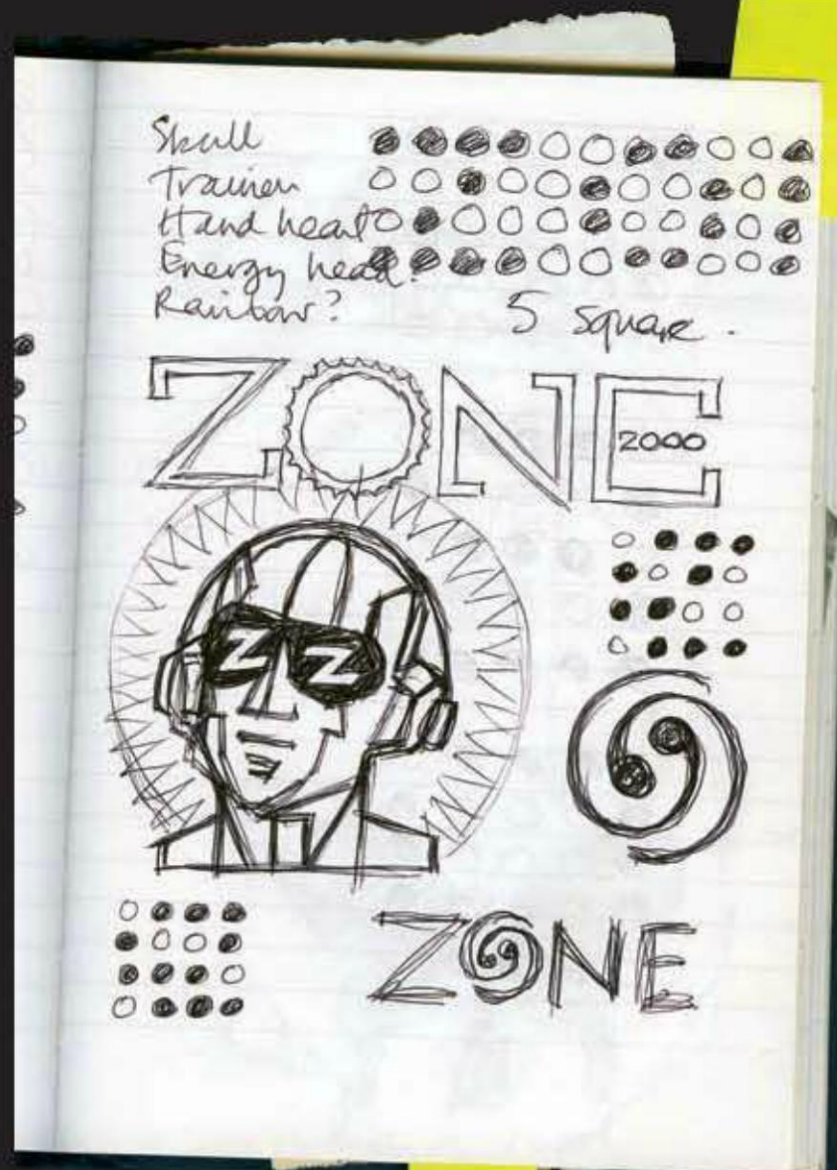 Skull
Trainer
Hand heart
Energy head.
Rainbow?
5 square.
ZONE
2000
Z Z
ZONE